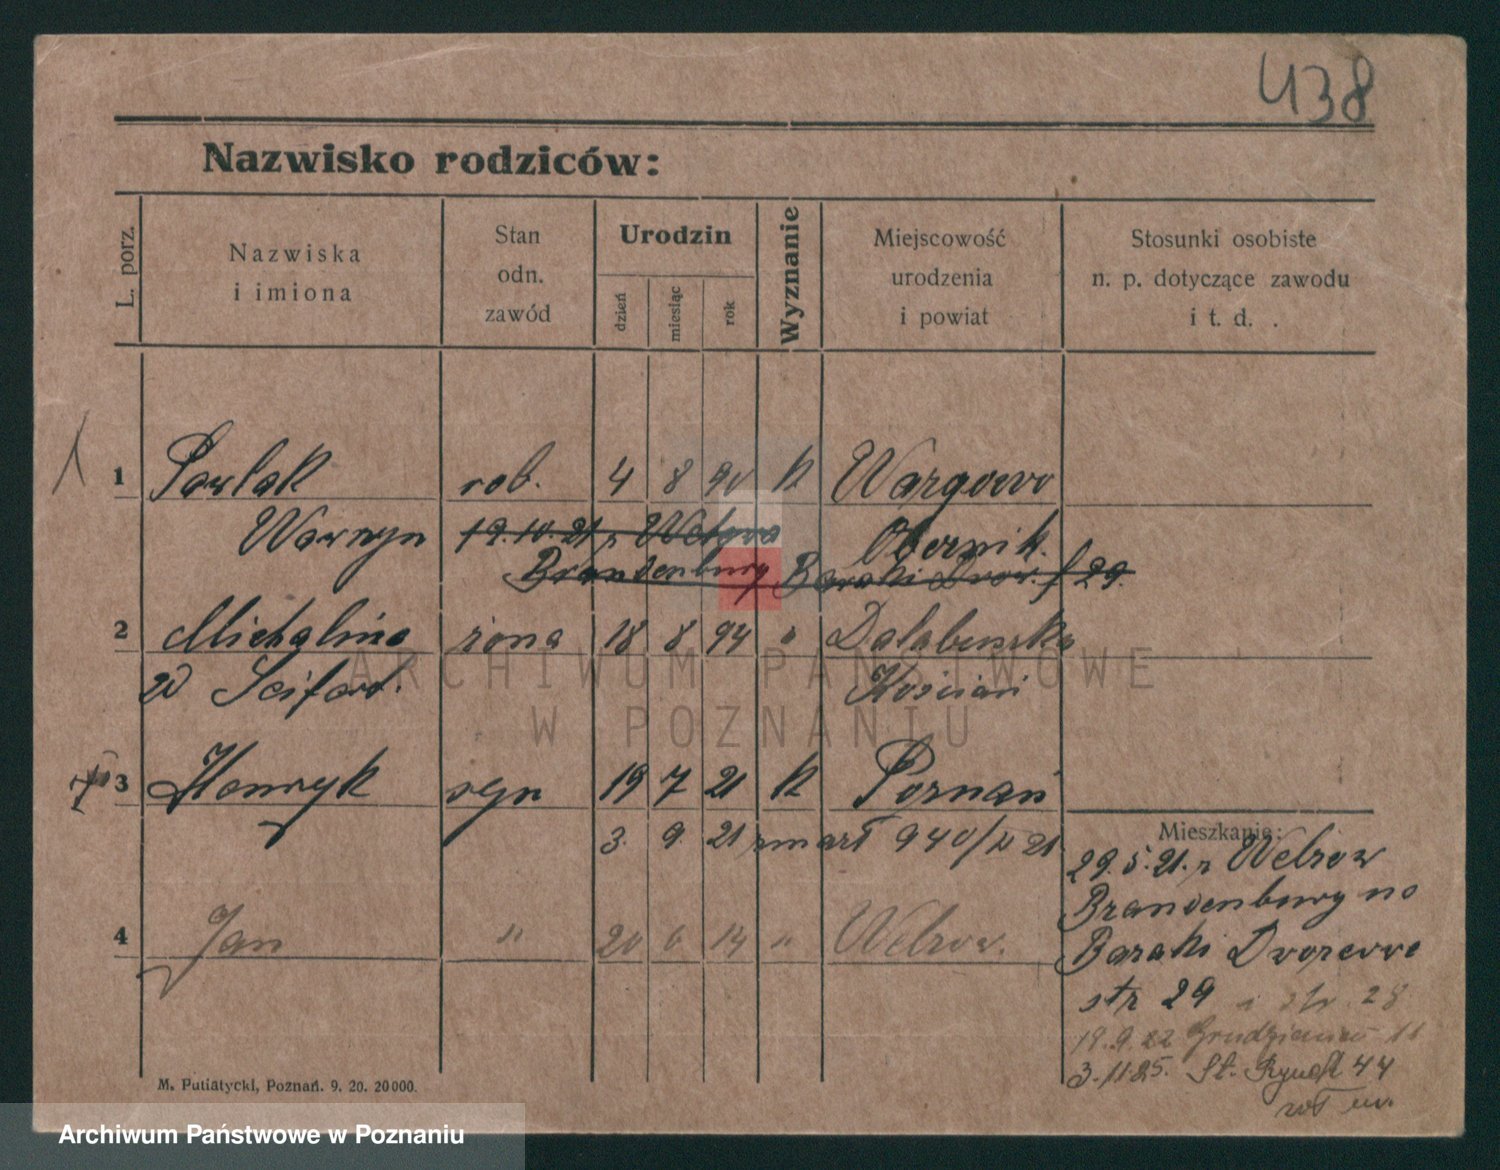 438
Nazwisko rodziców:
L. porz.
Nazwiska i imiona
Stan odn. zawód
Urodzin
dzień
miesiąc
rok
Wyznanie
Miejscowość urodzenia i powiat
Stosunki osobiste n. p. dotyczące zawodu i t. d.
1 Pawlak rob. 4 8 90 k Wargowo
Wawrzyn 19.10.21 z Obornik.
Brandenburg Baraki Dwor. 29.
2 Michalina żona 18 8 94 " Dalabuszka
Kościań
3 Henryk syn 19 7 21 k Poznań
3. 9. 21 zmarł 940/ 21
Mieszkanie:
29.5.21. z Welzow
Brandenburg no
4 Jan " 20 6 14 " Welzow.
Baraki Dworcowe
str 29 i str. 28
19.9.22 Grudzieniec
3.11.25. St. Rynek 44
M. Putiatycki, Poznań. 9. 20. 20000.
ARCHIWUM PAŃSTWOWE
W POZNANIU
Archiwum Państwowe w Poznaniu